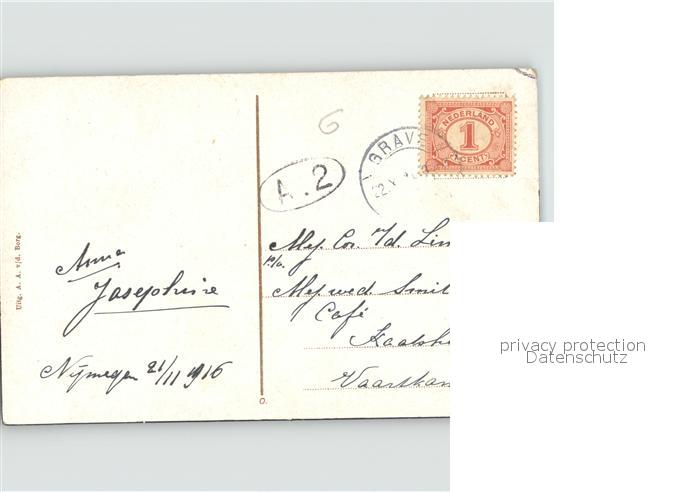 6
NEDERLAND
1
CENT
A.2
Mej. Co. v/d. Lin
p/a.
Mej. wed. Smit
Café
Kaatshe
Vaartkan
Anna
Josephine
Nijmegen 21/11 1916
Uitg. A. A. v/d. Borg.
O.
privacy protection
Datenschutz